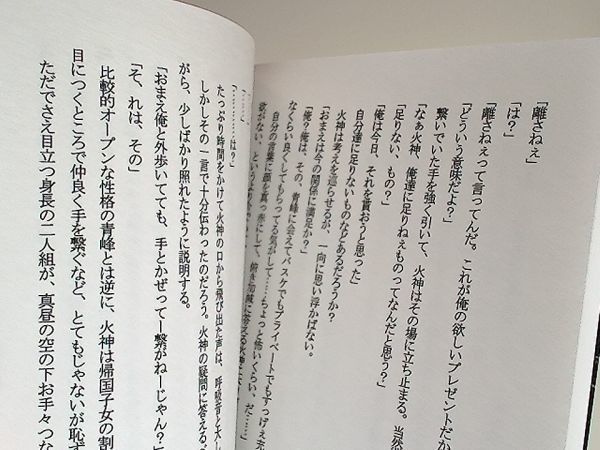 「離さねぇ」
「は？」
「離さねぇって言ってんだ。これが俺の欲しいプレゼントだか
「どういう意味だよ？」
繋いでいた手を強く引いて、火神はその場に立ち止まる。当然
「なぁ火神、俺達に足りねぇものってなんだと思う？」
「足りない、もの？」
「俺は今日、それを貰おうと思った」
自分達に足りないものなどあるだろうか？
火神は考えを巡らせるが、一向に思い浮かばない。
「おまえは今の関係に満足か？」
「俺？俺は、その、青峰に会えてバスケでもプライベートでもすっげぇ充
なくらい良くしてもらってる気がして……ちょっと怖いくらい、だ……」
自分の言葉に顔を真っ赤にして、俯き加減に答える火神に
欲がない、という
「………」
「………は？」
たっぷり時間をかけて火神の口から飛び出た声は、呼吸音と大し
しかしその一言で十分伝わったのだろう。火神の疑問に答えるべ
がら、少しばかり照れたように説明する。
「おまえ俺と外歩いてても、手とかぜってー繋がねーじゃん？」
「そ、れは、その」
比較的オープンな性格の青峰とは逆に、火神は帰国子女の割
目につくところで仲良く手を繋ぐなど、とてもじゃないが恥ず
ただでさえ目立つ身長の二人組が、真昼の空の下お手々つな